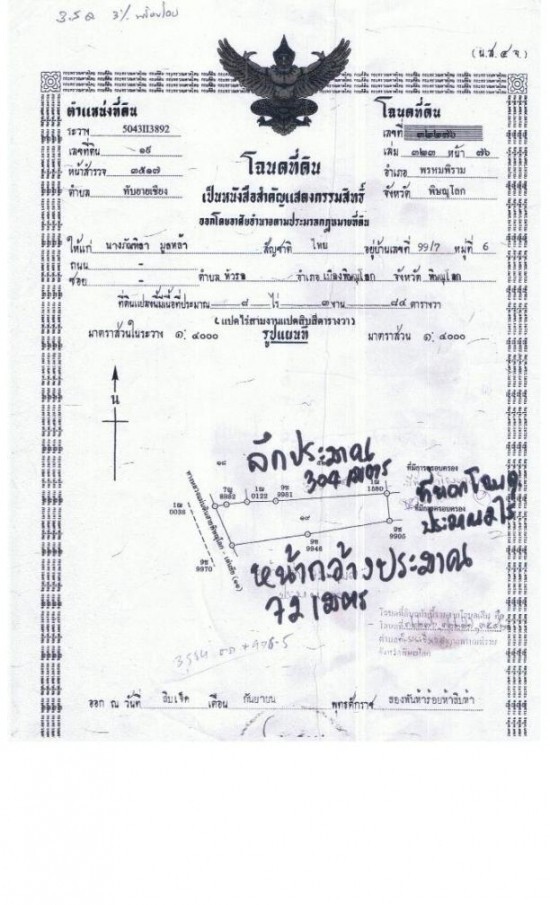 (น.ส.๔ จ.)
ตำแหน่งที่ดิน
ระวาง 5043II3892
เลขที่ดิน ๑๙
หน้าสำรวจ ๓๕๑๗
ตำบล ทับยายเชียง
โฉนดที่ดิน
เลขที่ ๓๒๒๗๖
เล่ม ๓๒๓ หน้า ๗๖
อำเภอ พรหมพิราม
จังหวัด พิษณุโลก
โฉนดที่ดิน
เป็นหนังสือสำคัญแสดงกรรมสิทธิ์
ออกโดยอาศัยอำนาจตามประมวลกฎหมายที่ดิน
ให้แก่ นาง มูลหล้า สัญชาติ ไทย อยู่บ้านเลขที่ 99/7 หมู่ที่ 6
ถนน -
ซอย - ตำบล หัวรอ อำเภอ เมืองพิษณุโลก จังหวัด พิษณุโลก
ที่ดินแปลงนี้มีเนื้อที่ประมาณ ๘ ไร่ ๓ งาน ๘๔ ตารางวา
(แปดไร่สามงานแปดสิบสี่ตารางวา)
มาตราส่วนในระวาง ๑: ๔๐๐๐ รูปแผนที่ มาตราส่วน ๑: ๔๐๐๐
น
ลึกประมาณ
304 เมตร
๑๘
ที่มีการครอบครอง
ที่นอกโฉนด
ประมาณ ไร่
1ฒ
0038
7ญ
8982
1ฒ
0122
9ซ
9961
1ฒ
1580
๑๙
9ซ
9946
9ซ
9905
9ซ
9970
หน้ากว้างประมาณ
72 เมตร
ออก ณ วันที่ สิบเจ็ด เดือน กันยายน พุทธศักราช สองพันห้าร้อยห้าสิบห้า